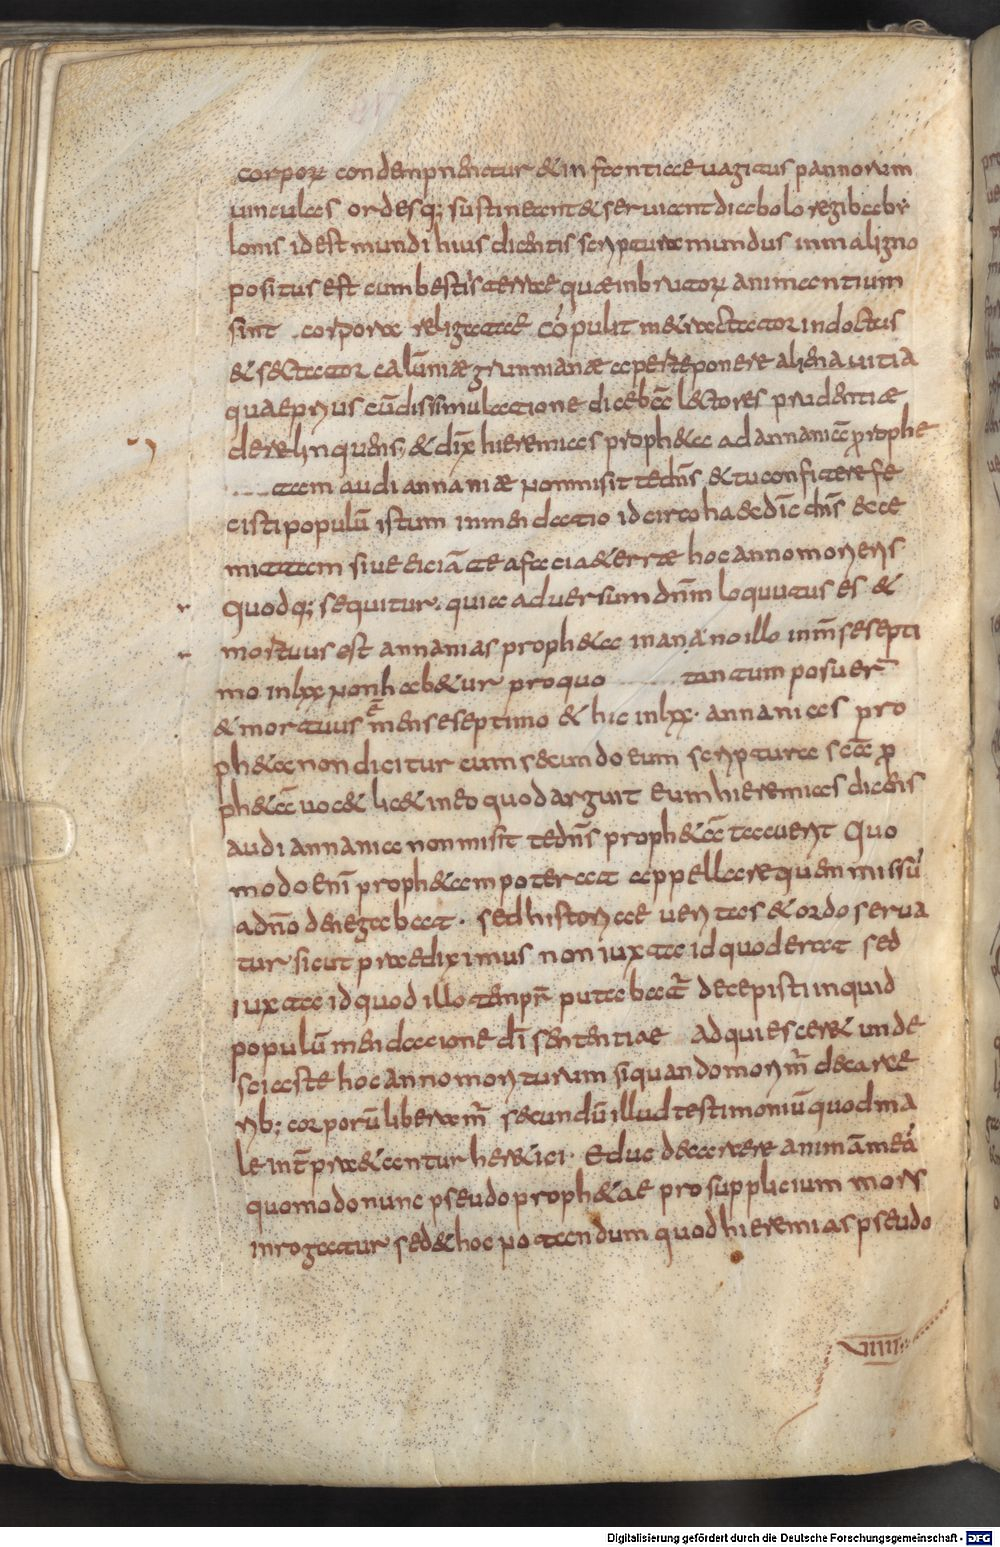 corporꝝ condempnentur & infantiae uagitus pannorum
uinculas ordesq; sustineant & seruiant diabolo regi babi
lonis id est mundi huius dicentis scriptura mundus in maligno
positus est cum bestiis terrae quae in brutorꝝ animantium
sint corpora religatae cōpulit me & ractator indoctus
& sectator calūniae grunnianae aperte ponere aliena uitia
quae prius cū dissimulatione dicebā lectores prudentiae
derelinquens; & dix̄ hieremias proph&a ad annaniā prophe
tam audi annaniae non misit te dn̄s & tu confitere fe
cisti populū istum in mendatio idcirco haec dic̄ dn̄s ecce
mittam siue eiciā te a facia & errae hoc anno morieris
Quodq; sequitur. quia aduersum dn̄m loquutus es &
mortuus est annanias proph&a in anno illo in m̄se septi
mo in lxx non hab&ur pro quo tantum posuer̄
& mortuus ē mense septimo & hic in lxx. annanias pro
ph&a non dicitur cum secundo eum scriptura scā pro
ph&ā uoc& lic& in eo quod arguit eum hieremias dicens
audi annania non misit te dn̄s proph&ā tacuerit Quo
modo enī proph&am poterat appellare quem missū
a dn̄o denegabat. sed historiae ueritas & ordo serua
tur sicut praediximus non iuxta id quod erat sed
iuxta id quod illo tempr̄ putabat̄ decepisti inquid
populū mendacione dī sententiae adquiescere & unde
sciaste hoc anno moriturum siquando morim̄ de carce
rib; corporū liberam̄ secundū illud testimoniū quod ma
le int̄praetantur heretici. Educ de carcere animā meā
quomodo nunc pseudo proph&ae pro supplicium mors
inrogatur sed & hoc notandum quod hieremias pseudo
VIIII
Digitalisierung gefördert durch die Deutsche Forschungsgemeinschaft - DFG